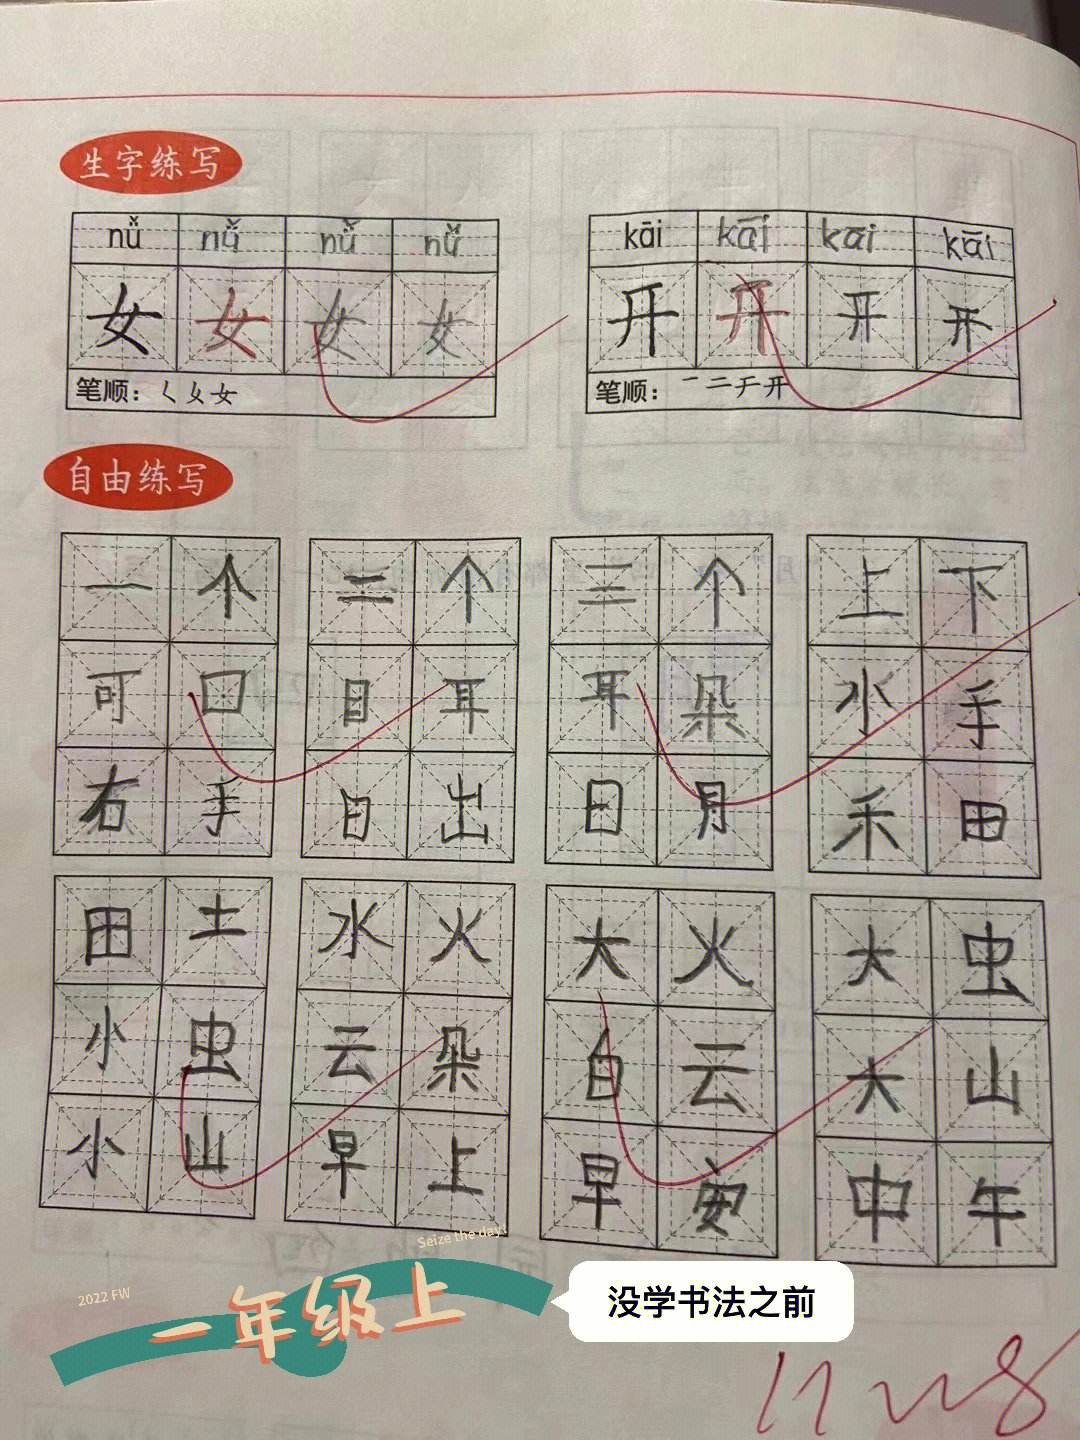 生字练写
nǚ nǚ nǚ nǚ
女 女 女 女
笔顺：ㄑ 女 女
kāi kāi kāi kāi
开 开 开 开
笔顺：一 二 于 开
自由练写
一 个 二 个 三 个 上 下
可 口 目 耳 耳 朵 小 手
右 手 日 出 日 月 禾 田
田 土 水 火 大 火 大 虫
小 虫 云 朵 白 云 大 山
小 山 早 上 早 安 中 午
Seize the day!
2022 FW
一年级上
没学书法之前